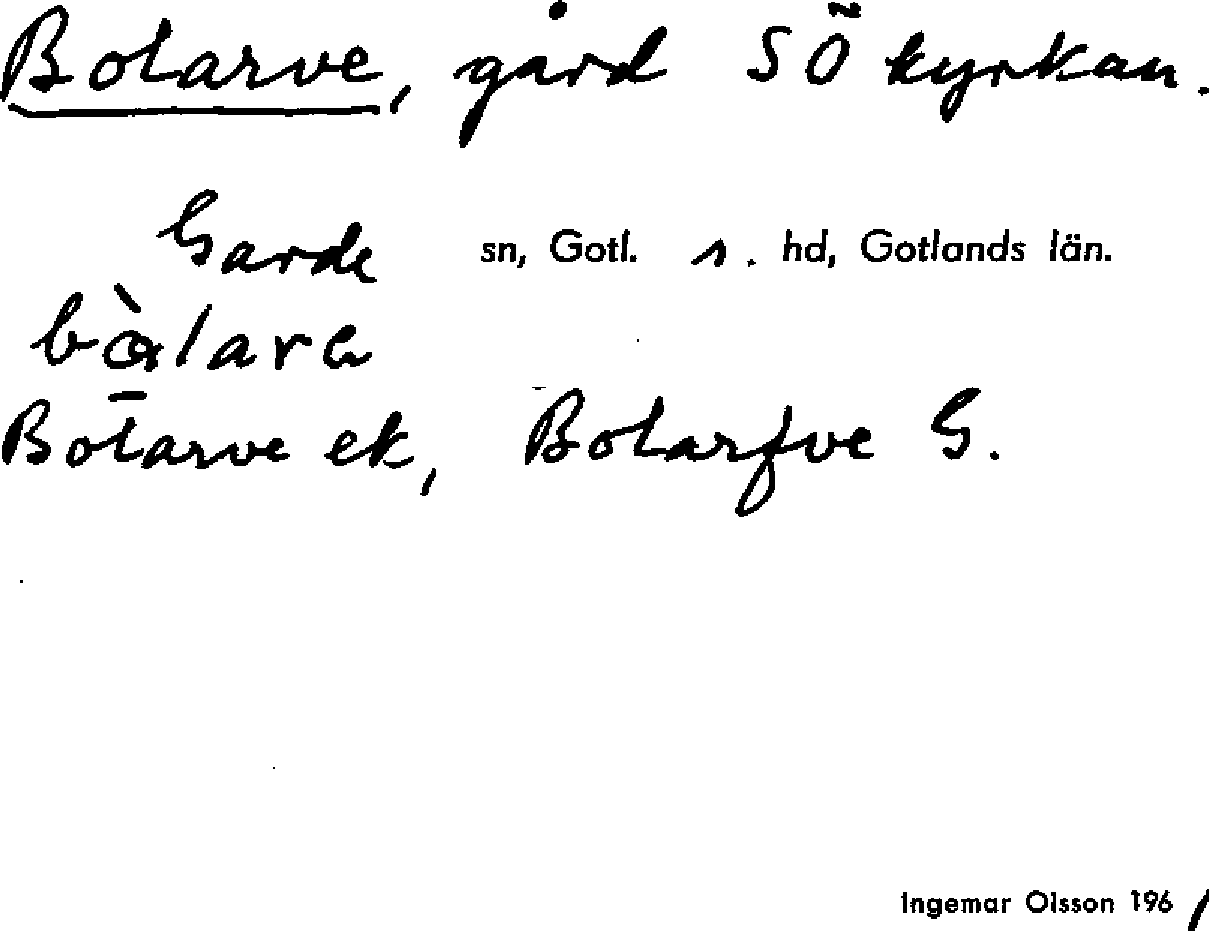 Botarve, gård SÖ kyrkan.
Garde sn, Gotl. s. hd, Gotlands län.
Botarve ek, Botarfve G.
Ingemar Olsson 1961